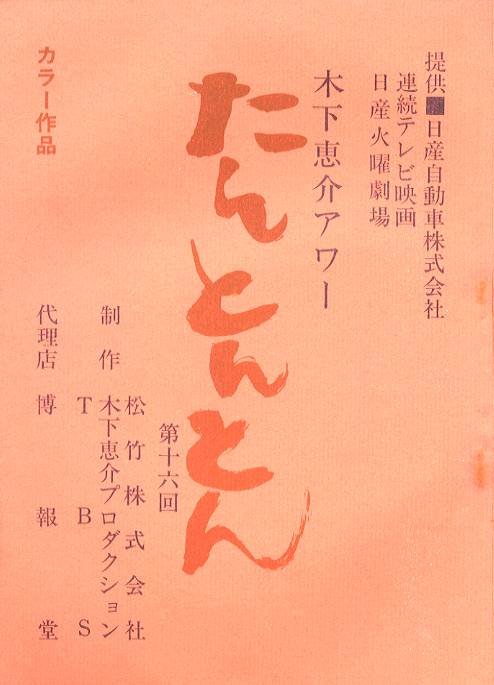 提供 日産自動車株式会社
連続テレビ映画
日産火曜劇場
木下恵介アワー
たんとんとん
第十六回
制作
松竹株式会社
木下恵介プロダクション
TBS
代理店 博報堂
カラー作品